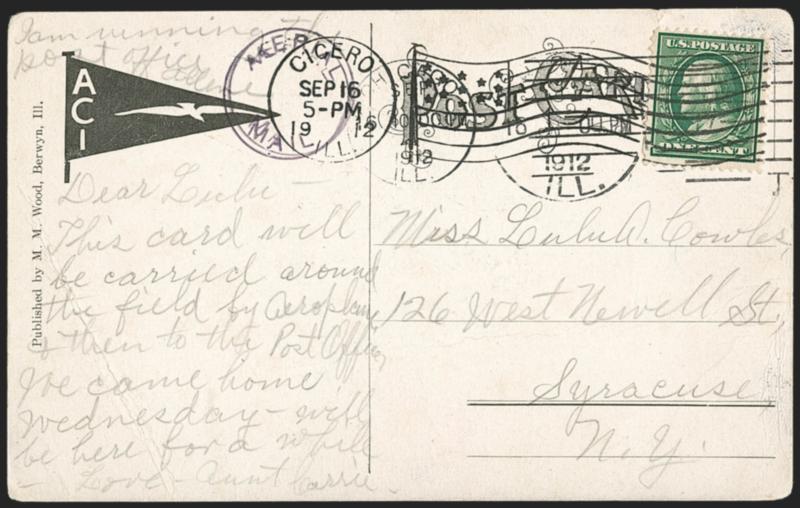 I am running the
post office
ACI
AERIAL
MAIL
CICERO
SEP 16
5-PM
1912
ILL.
POST CARD
1912
ILL.
1912
ILL.
U.S. POSTAGE
ONE CENT
Published by M. M. Wood, Berwyn, Ill.
Dear Lulu –
This card will
be carried around
the field by Aeroplane
& then to the Post Office,
We came home
Wednesday – will
be here for a while
– Love – Aunt Carrie
Miss Lulu A. Cowles,
126 West Newell St,
Syracuse,
N. Y.